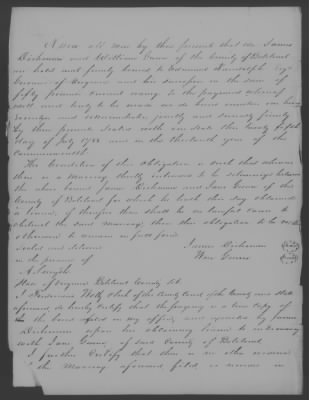 Know all men by these presents that we James
Dickinson and William Greer of the County of Botetourt
are held and firmly bound to Edmund Randolph Esqr
Governor of Virginia and his successors in the sum of
fifty pounds current money to the payment whereof
well and truly to be made we do bind ourselves our heirs
executors and administrators jointly and severally firmly
by these presents Sealed with our Seals this twenty fifth
day of July 1788 and in the thirteenth year of the
Commonwealth
The Condition of this Obligation is such that whereas
there is a Marriage shortly intended to be solemnized between
the above bound James Dickinson and Jane Greer of this
County of Botetourt for which he hath this day obtained
a licence, if therefore there shall be no lawful cause to
obstruct the said marriage then this obligation to be void
otherwise to remain in full force
Sealed and delivered James Dickinson
in the presence of Wm Greer
State of Virginia Botetourt County Sct.
I Clerk of the County Court of the County and State
aforesaid do hereby Certify that the foregoing is a true Copy of
the bond filed in my office, and executed by James
Dickinson upon his obtaining licence to intermarry
with Jane Greer, of said County of Botetourt
I further Certify that there is no other record
of the Marriage aforesaid filed or remains in